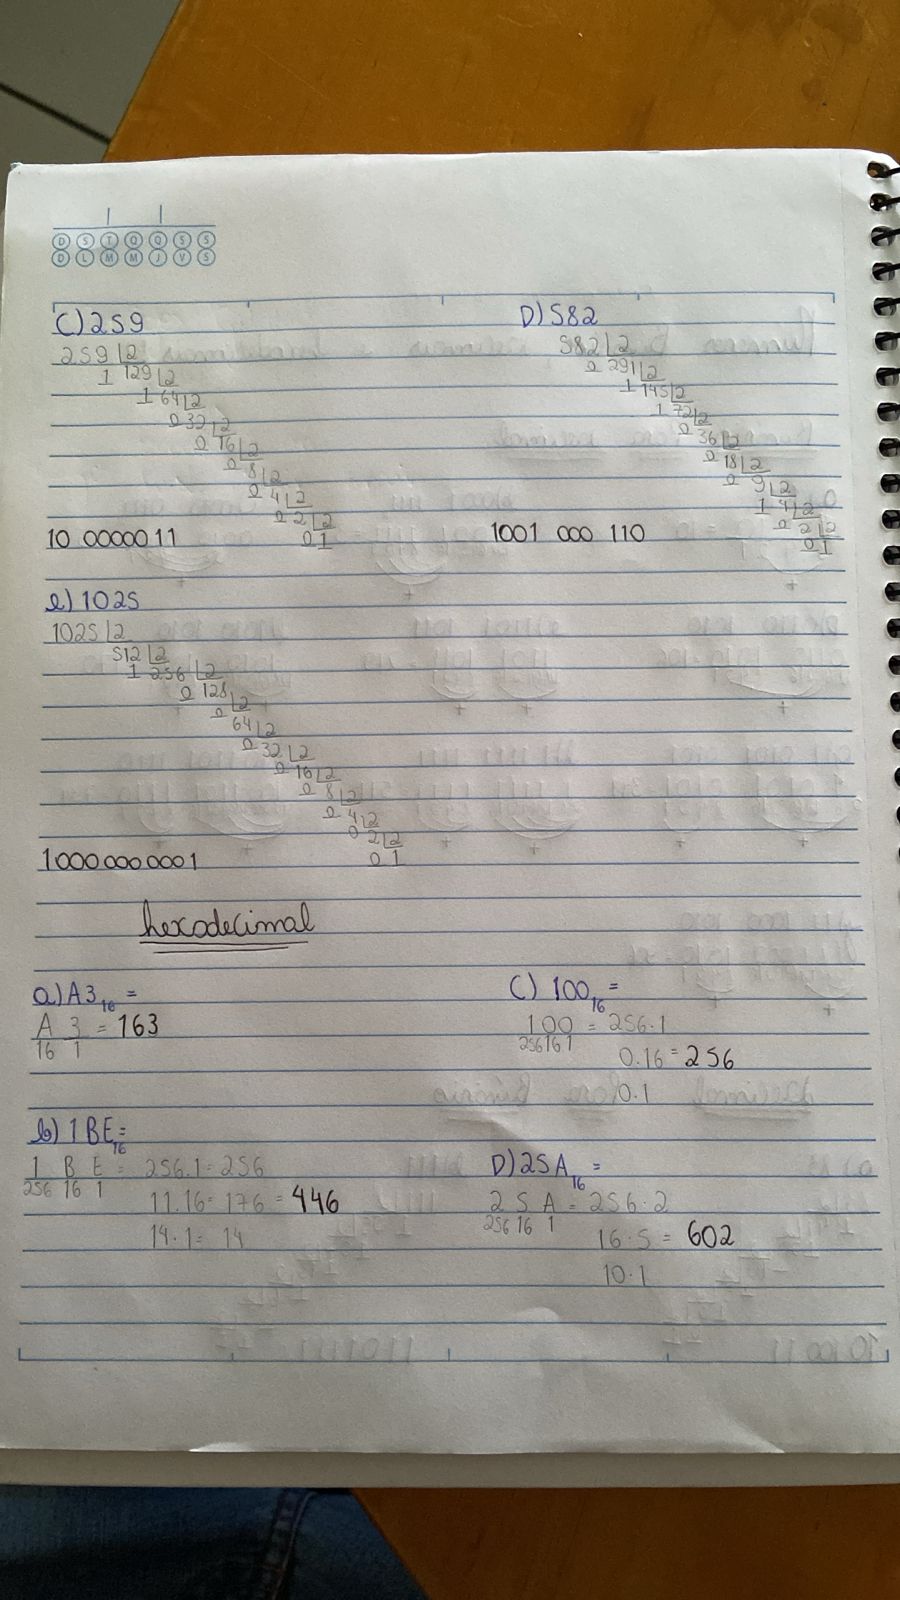 D S T Q Q S S
D L M M J V S
C) 259
259 2
1 129 2
1 64 2
0 32 2
0 16 2
0 8 2
0 4 2
0 2 2
0 1
10 0000011
D) 582
582 2
0 291 2
1 145 2
1 72 2
0 36 2
0 18 2
0 9 2
1 4 2
0 2 2
0 1
1001 000 110
e) 1025
1025 2
512 2
1 256 2
0 128 2
0 64 2
0 32 2
0 16 2
0 8 2
0 4 2
0 2 2
0 1
1000000001
hexodecimal
a) A3₁₆ =
A 3 = 163
16 1
b) 1BE₁₆ =
1 B E = 256.1 = 256
256 16 1
11.16 = 176 = 446
14.1 = 14
C) 100₁₆ =
100 = 256.1
256 16 1
0.16 = 256
0.1
D) 25A₁₆ =
2 5 A = 256.2
256 16 1
16.5 = 602
10.1